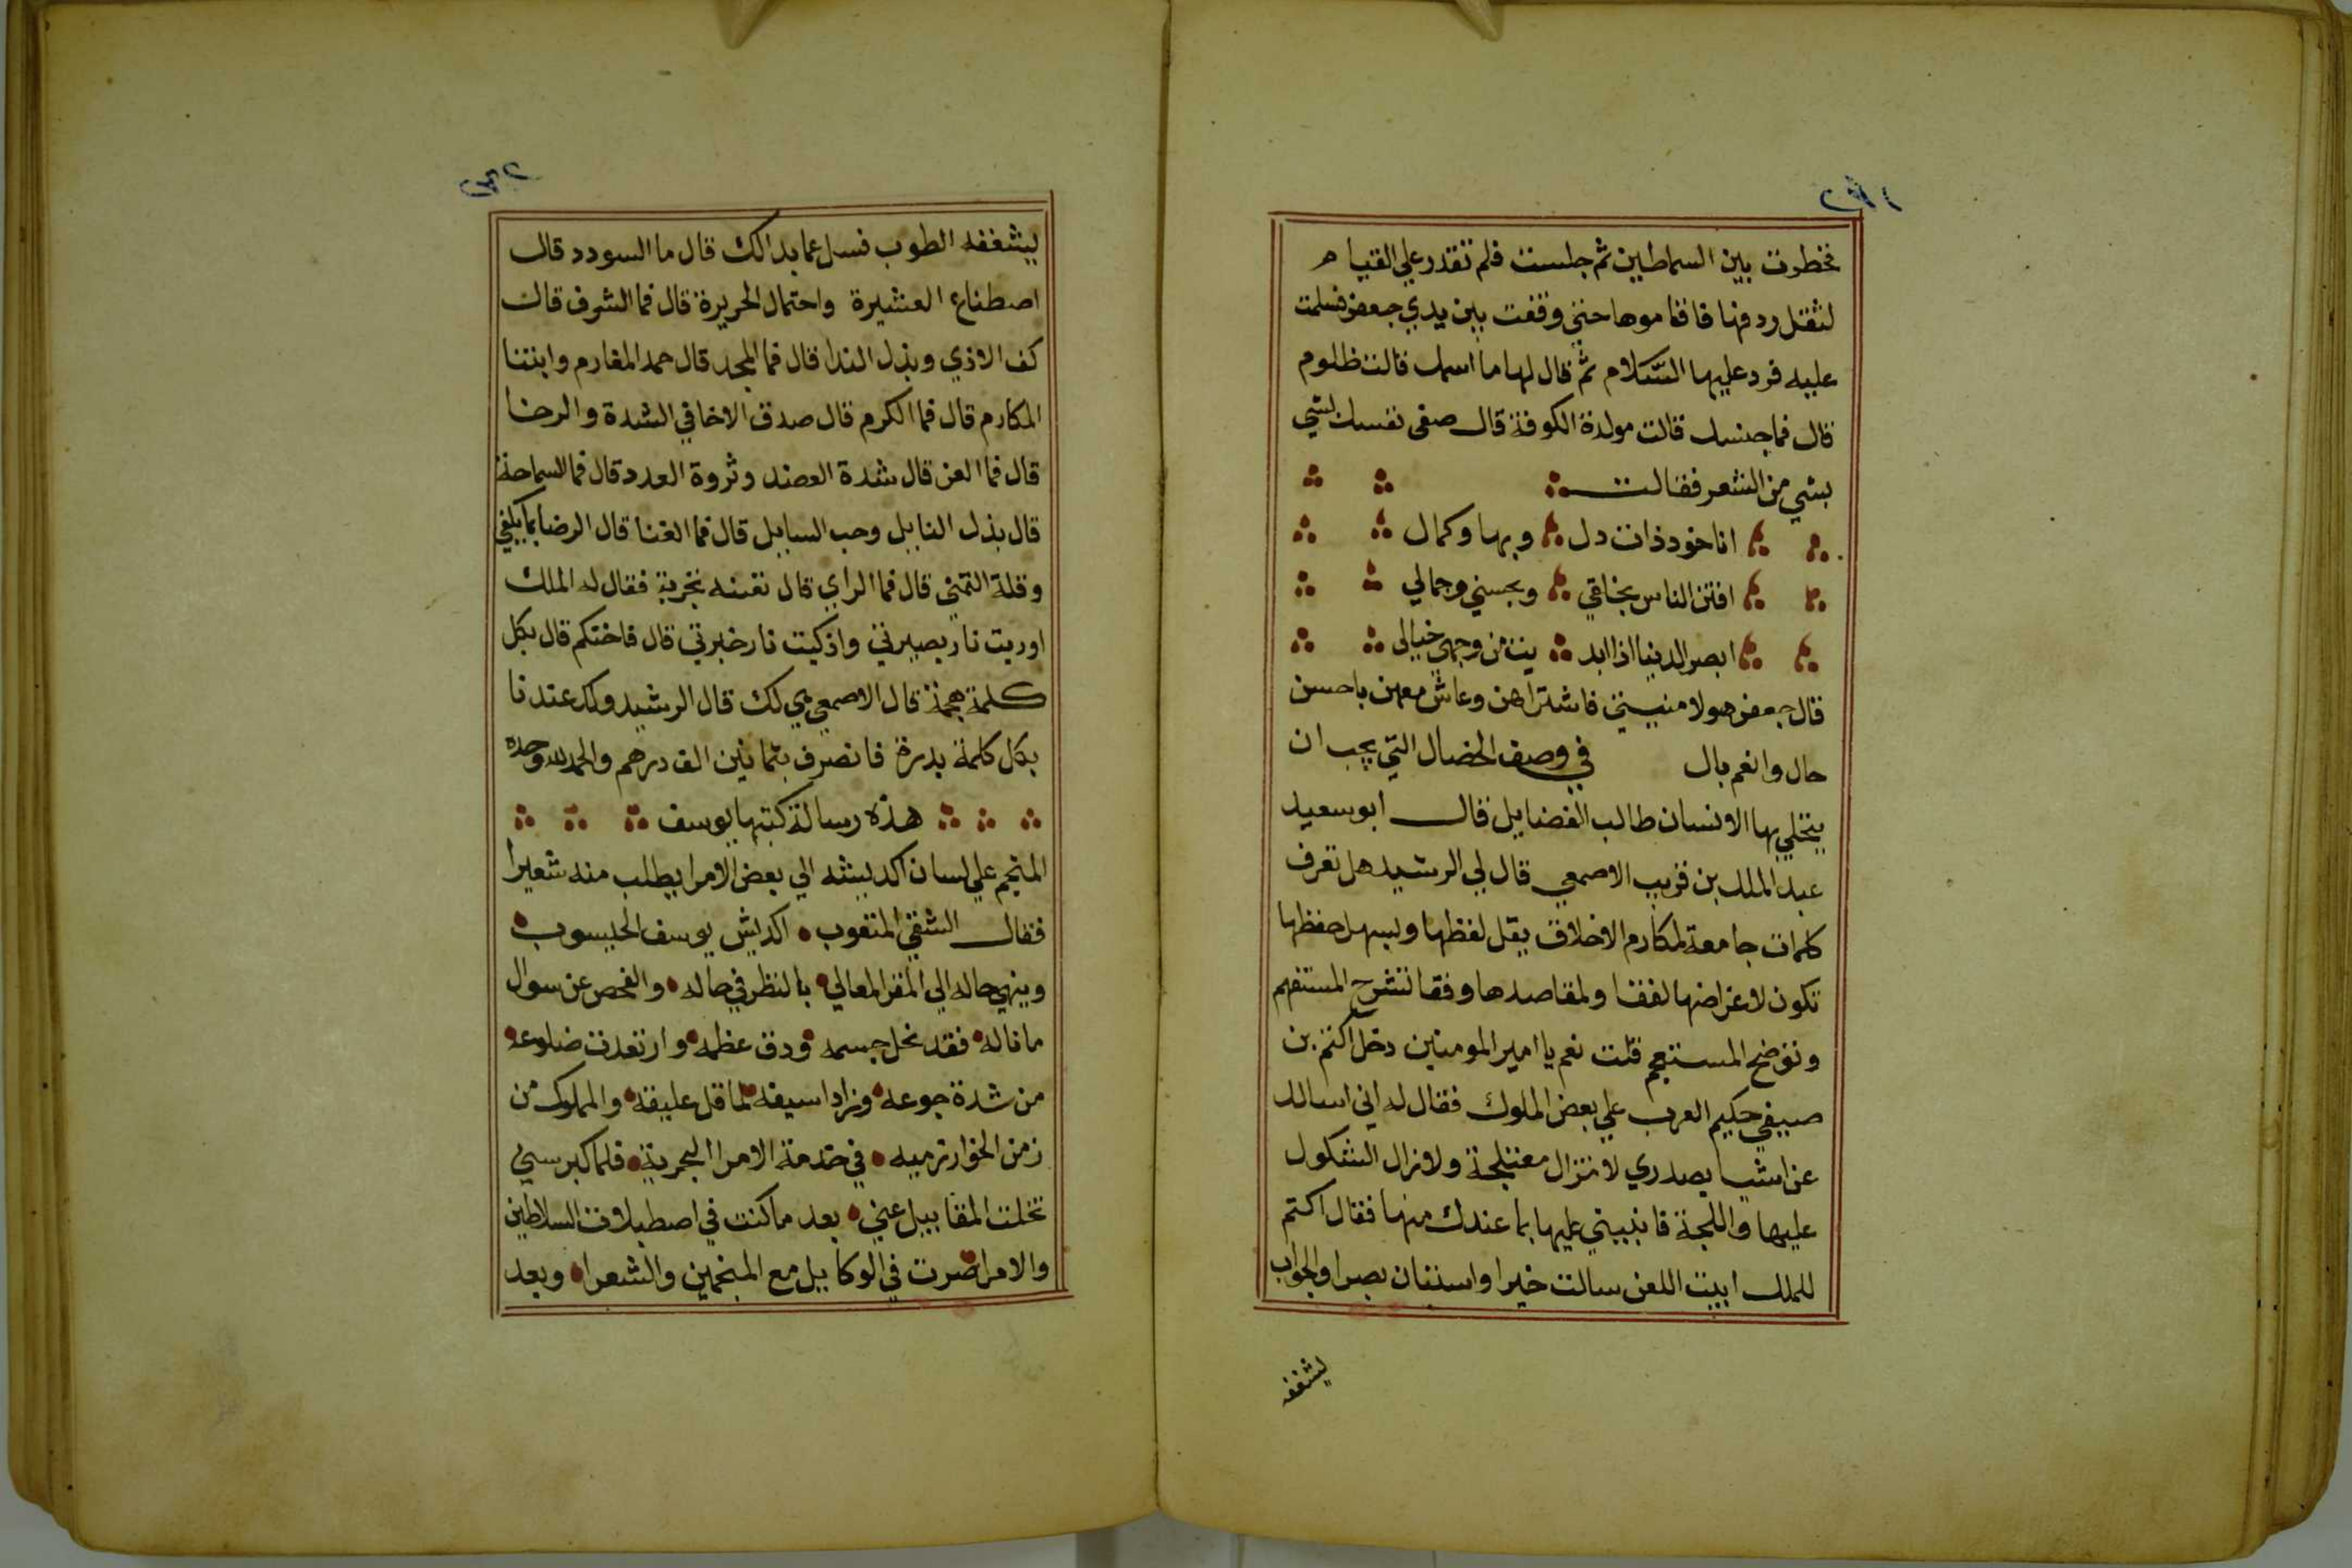 ٢٧١
فخطرت بين السماطين ثم جلست فلم تقدر علي القيام
لثقل ردفها فاقاموها حتي وقفت بين يدي جعفر فسلمت
عليه فرد عليها السّلام ثم قال لها ما اسمك قالت ظلوم
قال فما جنسك قالت مولدة الكوفة قال صفي نفسك لشي
بشي من الشعر فقالت
انا خود ذات دل وبها وكمال
افتن الناس بخلقي وبحسني وجمالي
ابصر الدنيا اذا ابد يت من وجهي خيالي
قال جعفر هولا منيتي فاشتراهن وعاش معهن باحسن
حال وانعم بال في وصف الخصال التي يجب ان
يتخلي بها الانسان طالب الفضايل قال ابو سعيد
عبد الملك بن قريب الاصمعي قال لي الرشيد هل تعرف
كلمات جامعة لمكارم الاخلاق يقل لفظها ويسهل حفظها
تكون لاغراضها لفقا ولمقاصدها وفقا تشرح المستفهم
وتوضح المستعجم قلت نعم يا امير المومنين دخل اكتم بن
صيفي حكيم العرب علي بعض الملوك فقال له اني اسالك
عن اشيا بصدري لا تزال معتلجة ولا تزال الشكول
عليها واللجة فانبيني عليها بما عندك منها فقال اكتم
للملك ابيت اللعن سالت خيرا واستفان بصرا والجواب
يشفغه
٢٧٢
يشفغه الطوب فسل عما بدالك قال ما السودد قال
اصطناع العشيرة واحتمال الجريرة قال فما الشرف قال
كف الاذي وبذل الندا قال فما المجد قال حمد المغارم وابتنا
المكارم قال فما الكرم قال صدق الاخا في الشدة والرخا
قال فما العز قال شدة العضد وثروة العدد قال فما السماحة
قال بذل النايل وحب السايل قال فما الغنا قال الرضا بما يكفي
وقلة التمني قال فما الراي قال تعينه تجربة فقال له الملك
اوريت نار بصيرتي واذكيت نار خبرتي قال فاحتكم قال بكل
كلمة هجمة قال الاصمعي هي لك قال الرشيد ولك عندنا
بكل كلمة بدرة فانصرف بثمانين الف درهم والحمد لله وحده
هذه رسالة كتبها يوسف
المنجم علي لسان اكديشه الي بعض الامرا يطلب منه شعيرا
فقال الشقي المتعوب اكديش يوسف الحيسوب
وينهي حاله الي المقر المعالي بالنظر في حاله والفحص عن سوال
ما ناله فقد نحل جسمه ودق عظمه وارتعدت ضلوعه
من شدة جوعه وزاد اسيفه لما قل عليقه والمملوك من
زمن الخوارزميه في خدمة الامرا البحرية فلما كبر سني
تخلت المقابيل عني بعد ما كنت في اصطبلات السلاطين
والامرا صرت في الوكابيل مع المنجمين والشعرا وبعد